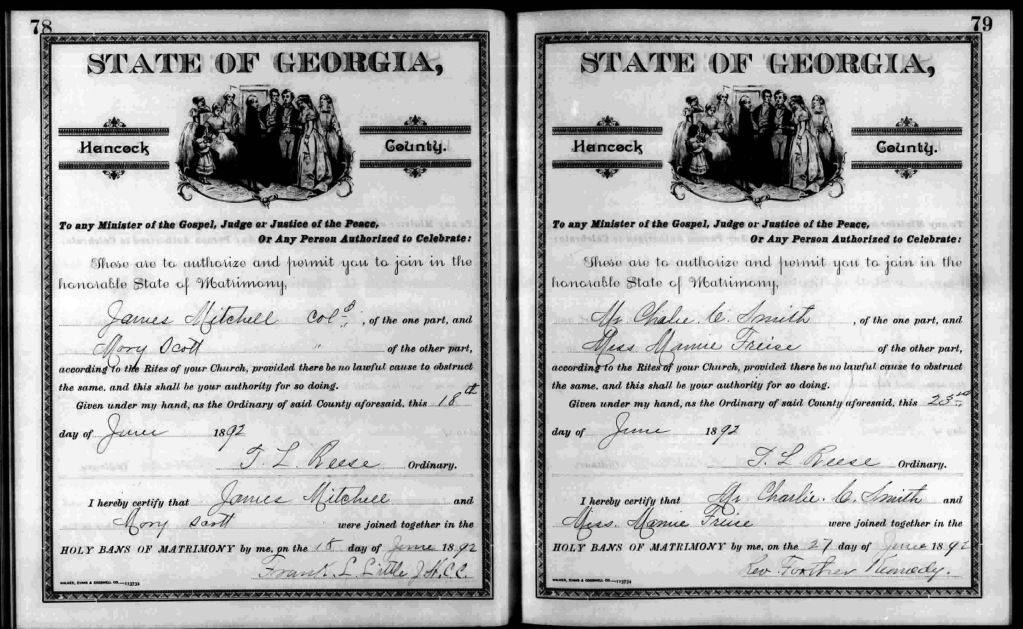 78
STATE OF GEORGIA,
Hancock County.
To any Minister of the Gospel, Judge or Justice of the Peace,
Or Any Person Authorized to Celebrate:
These are to authorize and permit you to join in the
honorable State of Matrimony,
James Mitchell Cold, of the one part, and
Mary Scott " of the other part,
according to the Rites of your Church, provided there be no lawful cause to obstruct
the same, and this shall be your authority for so doing.
Given under my hand, as the Ordinary of said County aforesaid, this 18th
day of June 1892
T. L. Reese Ordinary.
I hereby certify that James Mitchell and
Mary Scott were joined together in the
HOLY BANS OF MATRIMONY by me, on the 18 day of June 1892
Frank L. Little J.H.C.C.
WALKER, EVANS & COGSWELL CO.—113734
79
STATE OF GEORGIA,
Hancock County.
To any Minister of the Gospel, Judge or Justice of the Peace,
Or Any Person Authorized to Celebrate:
These are to authorize and permit you to join in the
honorable State of Matrimony,
Mr. Chalie. C. Smith, of the one part, and
Miss. Mamie Freise of the other part,
according to the Rites of your Church, provided there be no lawful cause to obstruct
the same, and this shall be your authority for so doing.
Given under my hand, as the Ordinary of said County aforesaid, this 23rd
day of June 1892
T. L. Reese Ordinary.
I hereby certify that Mr. Charlie. C. Smith and
Miss. Mamie Freise were joined together in the
HOLY BANS OF MATRIMONY by me, on the 27 day of June 1892
Rev Kennedy.
WALKER, EVANS & COGSWELL CO.—113734